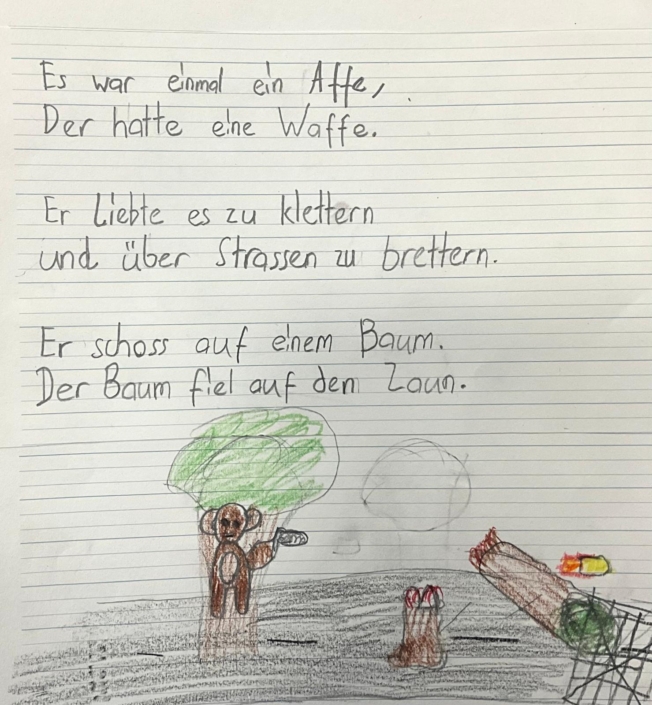 Es war einmal ein Affe,
Der hatte eine Waffe.
Er Liebte es zu klettern
und über Strassen zu brettern.
Er schoss auf einem Baum.
Der Baum fiel auf den Zaun.